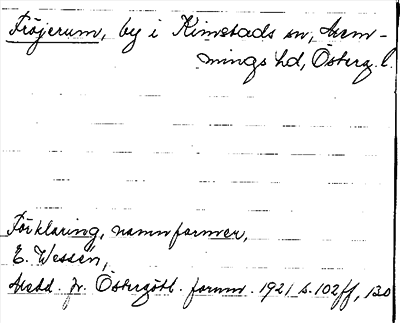 Fröjerum, by i Kimstads sn, Mem-
mings hd, Österg. l.
Förklaring, namnformer,
E. Wessén,
Medd. fr. Östergötl. fornm. 1921 s. 102 ff, 130